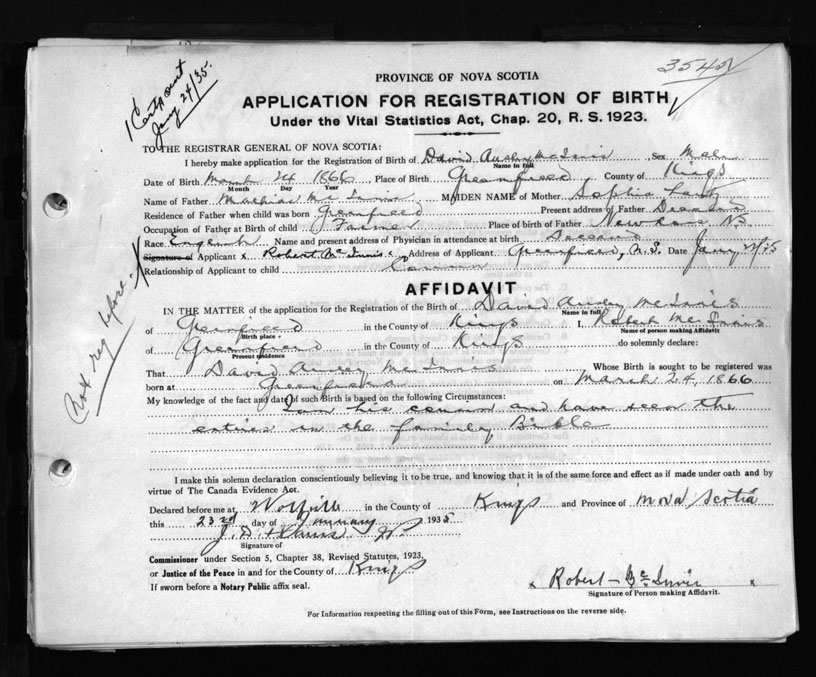 1 Cert sent
Jany 24/35.
3545
PROVINCE OF NOVA SCOTIA
APPLICATION FOR REGISTRATION OF BIRTH
Under the Vital Statistics Act, Chap. 20, R. S. 1923.
TO THE REGISTRAR GENERAL OF NOVA SCOTIA:
I hereby make application for the Registration of Birth of David Ausley McInnis Sex Male
Name in full
Date of Birth March 24 1866 Place of Birth Greenfield County of Kings
Month Day Year
Name of Father McInnis MAIDEN NAME of Mother Sophia
Residence of Father when child was born Greenfield Present address of Father Deceased
Occupation of Father at Birth of child Farmer Place of birth of Father New Ross NS.
Race English Name and present address of Physician in attendance at birth Deceased
Signature of Applicant x Robert McInnis x Address of Applicant Greenfield, N.S. Date Jany /35
Relationship of Applicant to child Cousin
Not reg before.
AFFIDAVIT
IN THE MATTER of the application for the Registration of the Birth of David Ausley McInnis
Name in full
of Greenfield in the County of Kings I, Robert McInnis
Birth place Name of person making Affidavit
of Greenfield in the County of Kings do solemnly declare:
Present residence
That David Ausley McInnis Whose Birth is sought to be registered was
born at Greenfield on March 24, 1866
My knowledge of the fact and date of such Birth is based on the following Circumstances:
I am his cousin and have seen the
entries in the family Bible
I make this solemn declaration conscientiously believing it to be true, and knowing that it is of the same force and effect as if made under oath and by
virtue of The Canada Evidence Act.
Declared before me at Wolfville in the County of Kings and Province of Nova Scotia
this 23rd day of January 1935
J. D. Harris
Signature of
Commissioner under Section 5, Chapter 38, Revised Statutes, 1923,
or Justice of the Peace in and for the County of Kings
If sworn before a Notary Public affix seal.
x Robert McInnis x
Signature of Person making Affidavit.
For Information respecting the filling out of this Form, see Instructions on the reverse side.